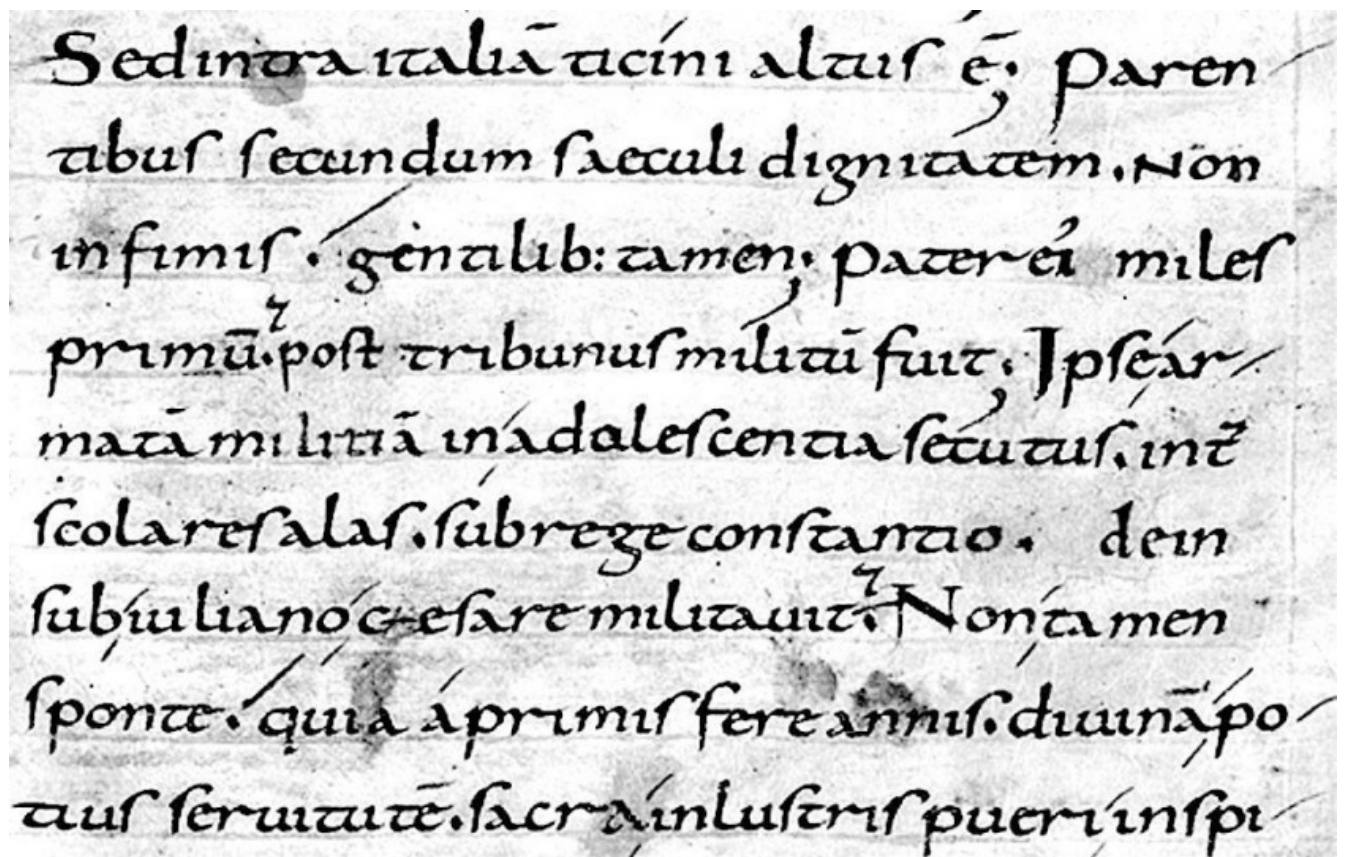 Sed intra italiā ticini altus ē; Paren-
tibus secundum saeculi dignitatem. Non
infimis. gentilib: tamen; Pater ei' miles
primū. post tribunus militū fuit; Ipse ar-
matā militiā in adolescentia secutus. int̄
scolares alas. sub rege constantio. dein
sub iuliano cęesare militauit. Non tamen
sponte. quia a primis fere annis. diuinā po-
tius seruitutē. sacra inlustris pueri inspi-